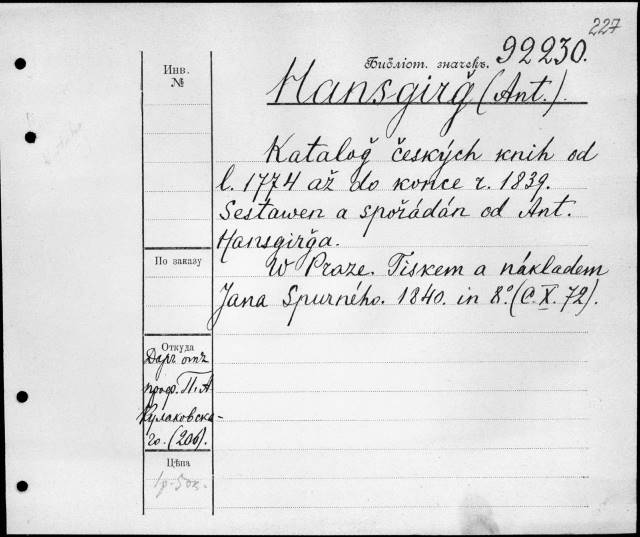 227
Библіот. значекъ. 92230.
Hansgirğ (Ant.).
Инв.
№
Kataloğ českých knih od
l. 1774 až do konce r. 1839.
Sestawen a spořádán od Ant.
Hansgirğa.
W Praze. Tiskem a nákladem
Jana Spurného. 1840. in 8.º (C. X. 72).
По заказу
Откуда
Даръ отъ
проф. П. А.
Кулаковска-
го. (206).
Цѣна
1р. 50к.